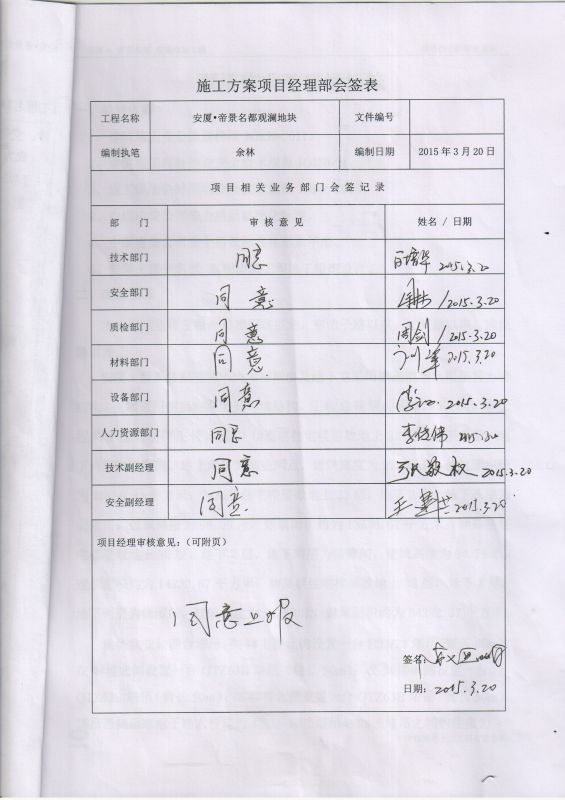 施工方案项目经理部会签表
工程名称 安厦·帝景名都观澜地块 文件编号
编制执笔 余林 编制日期 2015年3月20日
项目相关业务部门会签记录
部 门 审核意见 姓名 / 日期
技术部门 同意 2015.3.20
安全部门 同意 /2015.3.20
质检部门 同意 周剑 /2015.3.20
材料部门 同意 2015.3.20
设备部门 同意 2015.3.20
人力资源部门 同意 2015.3.20
技术副经理 同意 2015.3.20
安全副经理 同意 2015.3.20
项目经理审核意见：（可附页）
同意上报
签名：
日期：2015.3.20